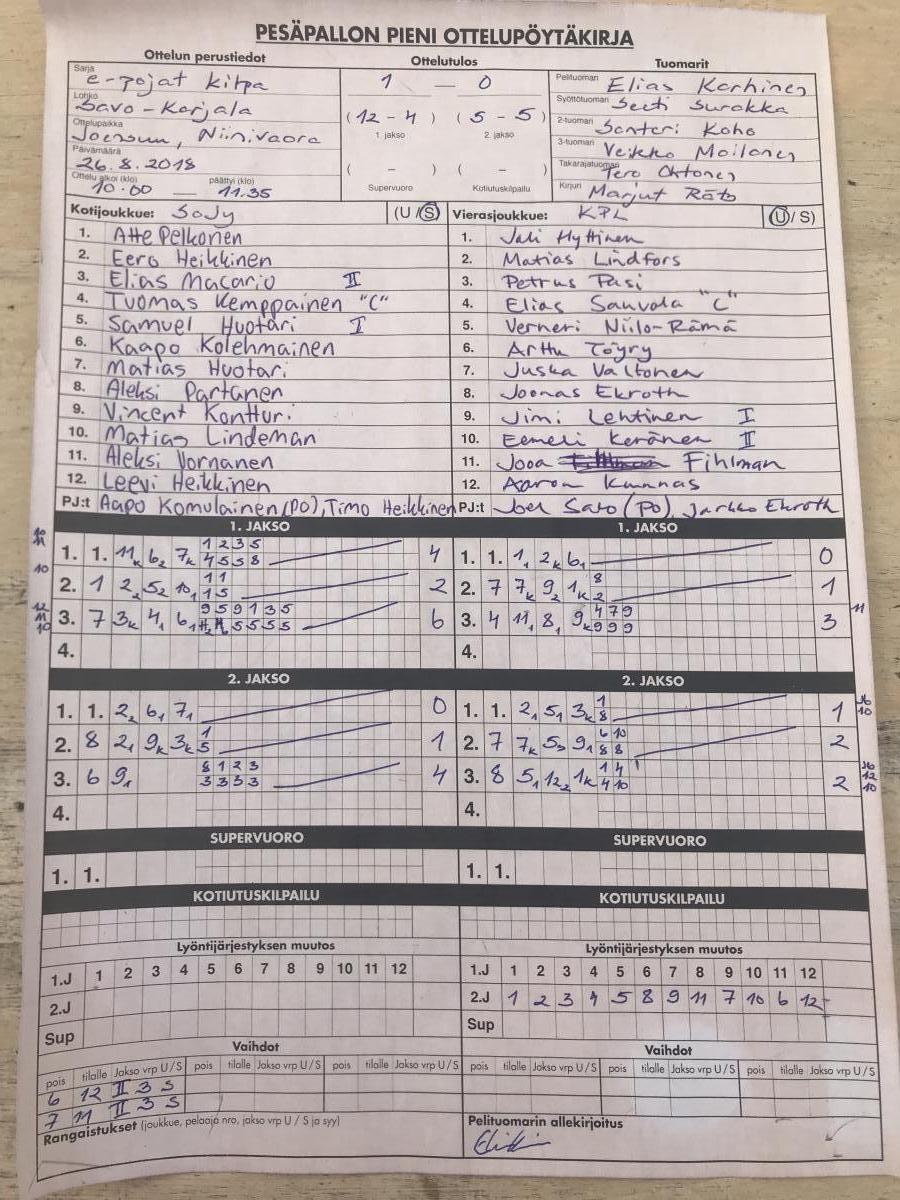 PESÄPALLON PIENI OTTELUPÖYTÄKIRJA
Ottelun perustiedot
Sarja
e-pojat kilpa
Lohko
Savo-Karjala
Ottelupaikka
Joensuu, Niinivaara
Päivämäärä
26.8.2018
Ottelu alkoi (klo) päättyi (klo)
10.00 — 11.35
Ottelutulos
1 — 0
(12 - 4) (5 - 5)
1. jakso 2. jakso
( - ) ( - )
Supervuoro Kotiutuskilpailu
Tuomarit
Pelituomari Elias Karhinen
Syöttötuomari Seeti Surakka
2-tuomari Santeri Koho
3-tuomari Veikko Moilanen
Takarajatuomari Tero Ohtonen
Kirjuri Marjut Räto
Kotijoukkue: SoJy (U/S)
1. Atte Pelkonen
2. Eero Heikkinen
3. Elias Macario II
4. Tuomas Kemppainen "C"
5. Samuel Huotari I
6. Kaapo Kolehmainen
7. Matias Huotari
8. Aleksi Partanen
9. Vincent Kontturi
10. Matias Lindeman
11. Aleksi Vornanen
12. Leevi Heikkinen
PJ:t Aapo Komulainen (PO), Timo Heikkinen
Vierasjoukkue: KPL (U/S)
1. Jali Hyttinen
2. Matias Lindfors
3. Petrus Pasi
4. Elias Sauvola "C"
5. Verneri Niilo-Rämä
6. Arttu Töyry
7. Juska Valtonen
8. Joonas Ekroth
9. Jimi Lehtinen I
10. Eemeli Keränen II
11. Jooa Fihlman
12. Aaron Kunnas
PJ:t Joel Saro (PO), Jarkko Ekroth
1. JAKSO
10
11
1. 1. 11k 62 7k 1 2 3 5 4
4 5 5 8
10
2. 1 22 52 10, 1 1 2
1 5
12
11
10
3. 7 3k 4, 6, 9 5 9 1 3 5 6
5 5 5 5
4.
1. JAKSO
1. 1. 1, 2k 6, 0
2. 7 7k 92 1k 8 1
2
3. 4 11, 8, 9k 4 7 9 3 11
9 9 9
4.
2. JAKSO
1. 1. 2, 6, 7, 0
2. 8 2, 9k 3k 1 1
5
3. 6 9, 8 1 2 3 4
3 3 3 3
4.
2. JAKSO
1. 1. 2, 5, 3k 1 1 10
8
2. 7 7k 5 9, 6 10 2
8 8
3. 8 5, 12, 1k 1 4 2 12 10
4 10
4.
SUPERVUORO
1. 1.
SUPERVUORO
1. 1.
KOTIUTUSKILPAILU
KOTIUTUSKILPAILU
Lyöntijärjestyksen muutos
1.J 1 2 3 4 5 6 7 8 9 10 11 12
2.J
Sup
Lyöntijärjestyksen muutos
1.J 1 2 3 4 5 6 7 8 9 10 11 12
2.J 1 2 3 4 5 8 9 11 7 10 6 12
Sup
Vaihdot
pois tilalle Jakso vrp U/S pois tilalle Jakso vrp U/S pois tilalle Jakso vrp U/S
6 12 II 3 S
7 11 II 3 S
Vaihdot
pois tilalle Jakso vrp U/S pois tilalle Jakso vrp U/S pois tilalle Jakso vrp U/S
Rangaistukset (joukkue, pelaaja nro, jakso vrp U/S ja syy)
Pelituomarin allekirjoitus